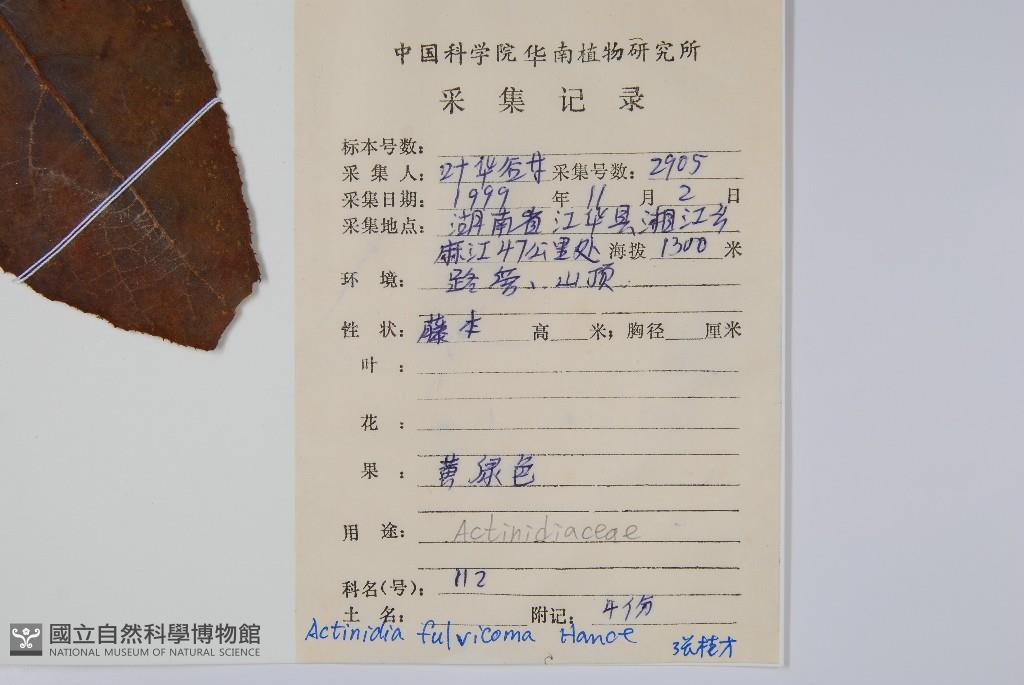 中国科学院华南植物研究所
采集记录
标本号数:
采集人: 叶华谷 采集号数: 2905
采集日期: 1999 年 11 月 2 日
采集地点: 湖南省江华县湘江乡
麻江47公里处 海拨 1300 米
环境: 路旁、山顶
性状: 藤本 高 米; 胸径 厘米
叶:
花:
果: 黄绿色
用途: Actinidiaceae
科名(号): 112
土名: 附记: 4份
Actinidia fulvicoma Hance
张桂才
國立自然科學博物館
NATIONAL MUSEUM OF NATURAL SCIENCE